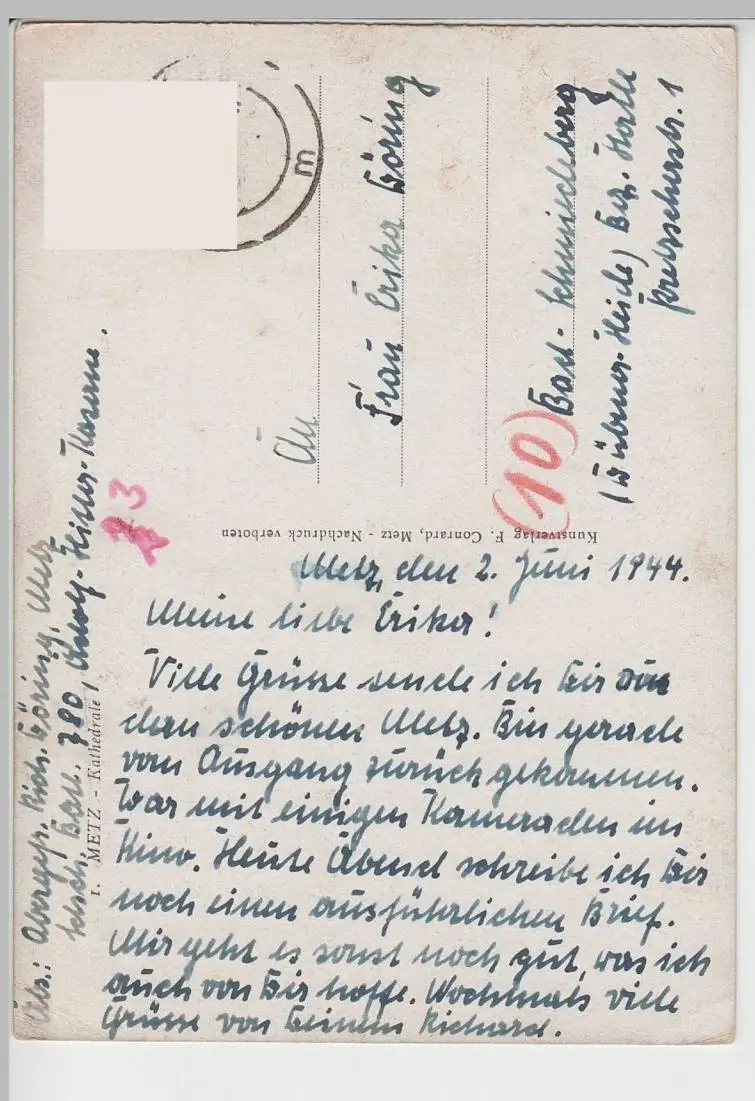 Metz, den 2. Juni 1944.
Meine liebe Erika!
Viele Grüsse sende ich Dir aus
dem schönen Metz. Bin gerade
vom Ausgang zurückgekommen.
War mit einigen Kameraden im
Kino. Heute Abend schreibe ich Dir
noch einen ausführlichen Brief.
Mir geht es sonst noch gut, was ich
auch von Dir hoffe. Nochmals viele
Grüsse von Deinem Richard.
An
Frau Erika Göring
Bad-Schmiedeberg
(Dübener-Heide) Bez. Halle
Pretzscherstr. 1
(10)
Kunstverlag F. Conrard, Metz - Nachdruck verboten
Abs.: Rich. Göring, Metz
Batl. 380, Adolf-Hitler-Kaserne.
1. METZ - Kathedrale
3
m